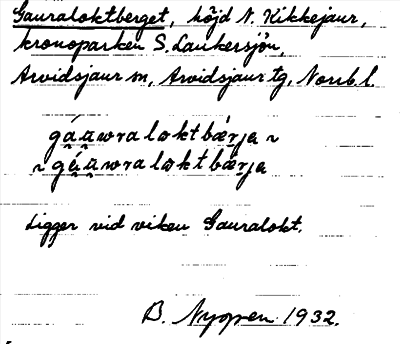 Gauraloktberget, höjd N. Kikkejaur,
kronoparken S. Laukersjön,
Arvidsjaur sn, Arvidsjaur tg, Norrb. l.
gáu̯wralɷktbærja ~
~ gáu̯wralɷktbærja
Ligger vid viken Gauralokt.
B. Nyopen 1932.